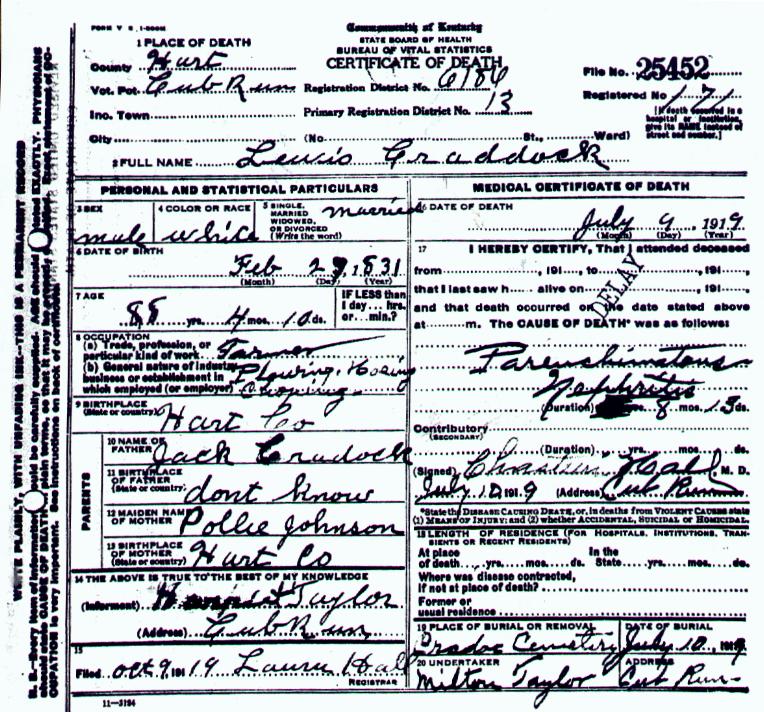 FORM V. S. 1-500M
Commonwealth of Kentucky
STATE BOARD OF HEALTH
BUREAU OF VITAL STATISTICS
CERTIFICATE OF DEATH
1 PLACE OF DEATH
County Hart
Vot. Pct. Cub Run Registration District No. 6186
File No. 25452
Registered No 171
Ino. Town Primary Registration District No. 13
[If death occurred in a hospital or institution, give its NAME instead of street and number.]
City (No. St., Ward)
2 FULL NAME Lewis Craddock
PERSONAL AND STATISTICAL PARTICULARS
3 SEX male
4 COLOR OR RACE white
5 SINGLE, MARRIED WIDOWED, OR DIVORCED (Write the word) married
6 DATE OF BIRTH
Feb 29, 1831
(Month) (Day) (Year)
7 AGE
88 yrs. 4 mos. 10 ds.
IF LESS than 1 day... hrs. or... min.?
8 OCCUPATION
(a) Trade, profession, or particular kind of work Farmer
(b) General nature of industry, business or establishment in which employed (or employer) Plowing, Hoeing Choping
9 BIRTHPLACE
(State or country) Hart Co
PARENTS
10 NAME OF FATHER Jack Cradock
11 BIRTHPLACE OF FATHER
(State or country) dont know
12 MAIDEN NAME OF MOTHER Pollie Johnson
13 BIRTHPLACE OF MOTHER
(State or country) Hart Co
14 THE ABOVE IS TRUE TO THE BEST OF MY KNOWLEDGE
(Informant) Taylor
(Address) Cub Run
15
Filed Oct 9, 1919 Laura Hall
REGISTRAR
11-3184
MEDICAL CERTIFICATE OF DEATH
16 DATE OF DEATH
July 9, 1919
(Month) (Day) (Year)
17 I HEREBY CERTIFY, That I attended deceased
from , 191 , to , 191 ,
that I last saw h alive on , 191 ,
DELAY
and that death occurred on the date stated above
at m. The CAUSE OF DEATH* was as follows:
Parenchimatous
Nephritis
(Duration) 8 mos. 13 ds.
Contributory
(SECONDARY)
(Duration) yrs. mos. ds.
(Signed) M. D.
July 10, 1919 (Address) Cub Run
*State the DISEASE CAUSING DEATH, or, in deaths from VIOLENT CAUSES state
(1) MEANS OF INJURY; and (2) whether ACCIDENTAL, SUICIDAL or HOMICIDAL.
18 LENGTH OF RESIDENCE (FOR HOSPITALS, INSTITUTIONS, TRANSIENTS OR RECENT RESIDENTS)
At place of death yrs. mos. ds. In the State yrs. mos. ds.
Where was disease contracted,
if not at place of death?
Former or
usual residence
19 PLACE OF BURIAL OR REMOVAL Cemetery
DATE OF BURIAL July 10, 1919
20 UNDERTAKER Milton Taylor
ADDRESS Cub Run
WRITE PLAINLY, WITH UNFADING INK—THIS IS A PERMANENT RECORD